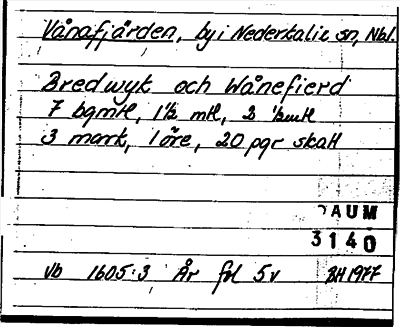 Vånafjärden, by i Nederkalix sn, Nbl.
Bredwyk och Wånefierd
7 bgmtl, 1½ mtl, 2 ½mtl
3 mark, 1 öre, 20 pgr skatt
DAUM
3140
Vb 1605:3 År fol 5v BH 1977